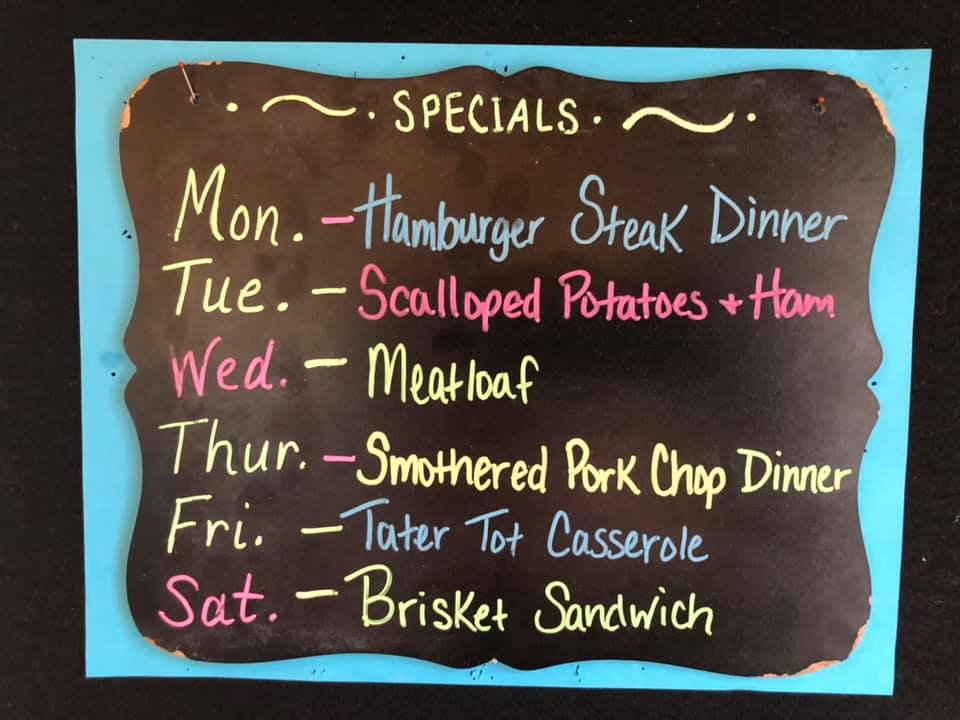 SPECIALS
Mon. - Hamburger Steak Dinner
Tue. - Scalloped Potatoes + Ham
Wed. - Meatloaf
Thur. - Smothered Pork Chop Dinner
Fri. - Tater Tot Casserole
Sat. - Brisket Sandwich